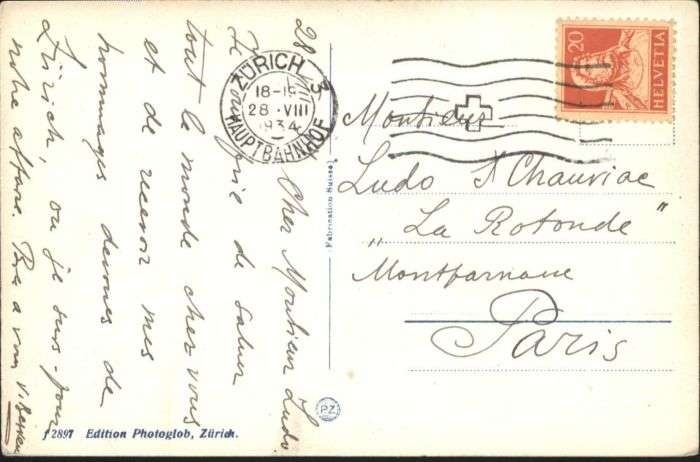 28
Cher Monsieur Ludo
Je vous prie de saluer
tout le monde chez vous
et de recevoir mes
hommages devoués de
Zürich, ou je suis pour
notre affaire. Bien a vous
ZÜRICH 3
18-19
28.VIII
1934
HAUPTBAHNHOF
20
HELVETIA
Monsieur
Ludo Chauviac
"La Rotonde"
Montparnasse
Paris
Fabrication Suisse
PZ
2897 Edition Photoglob, Zürich.